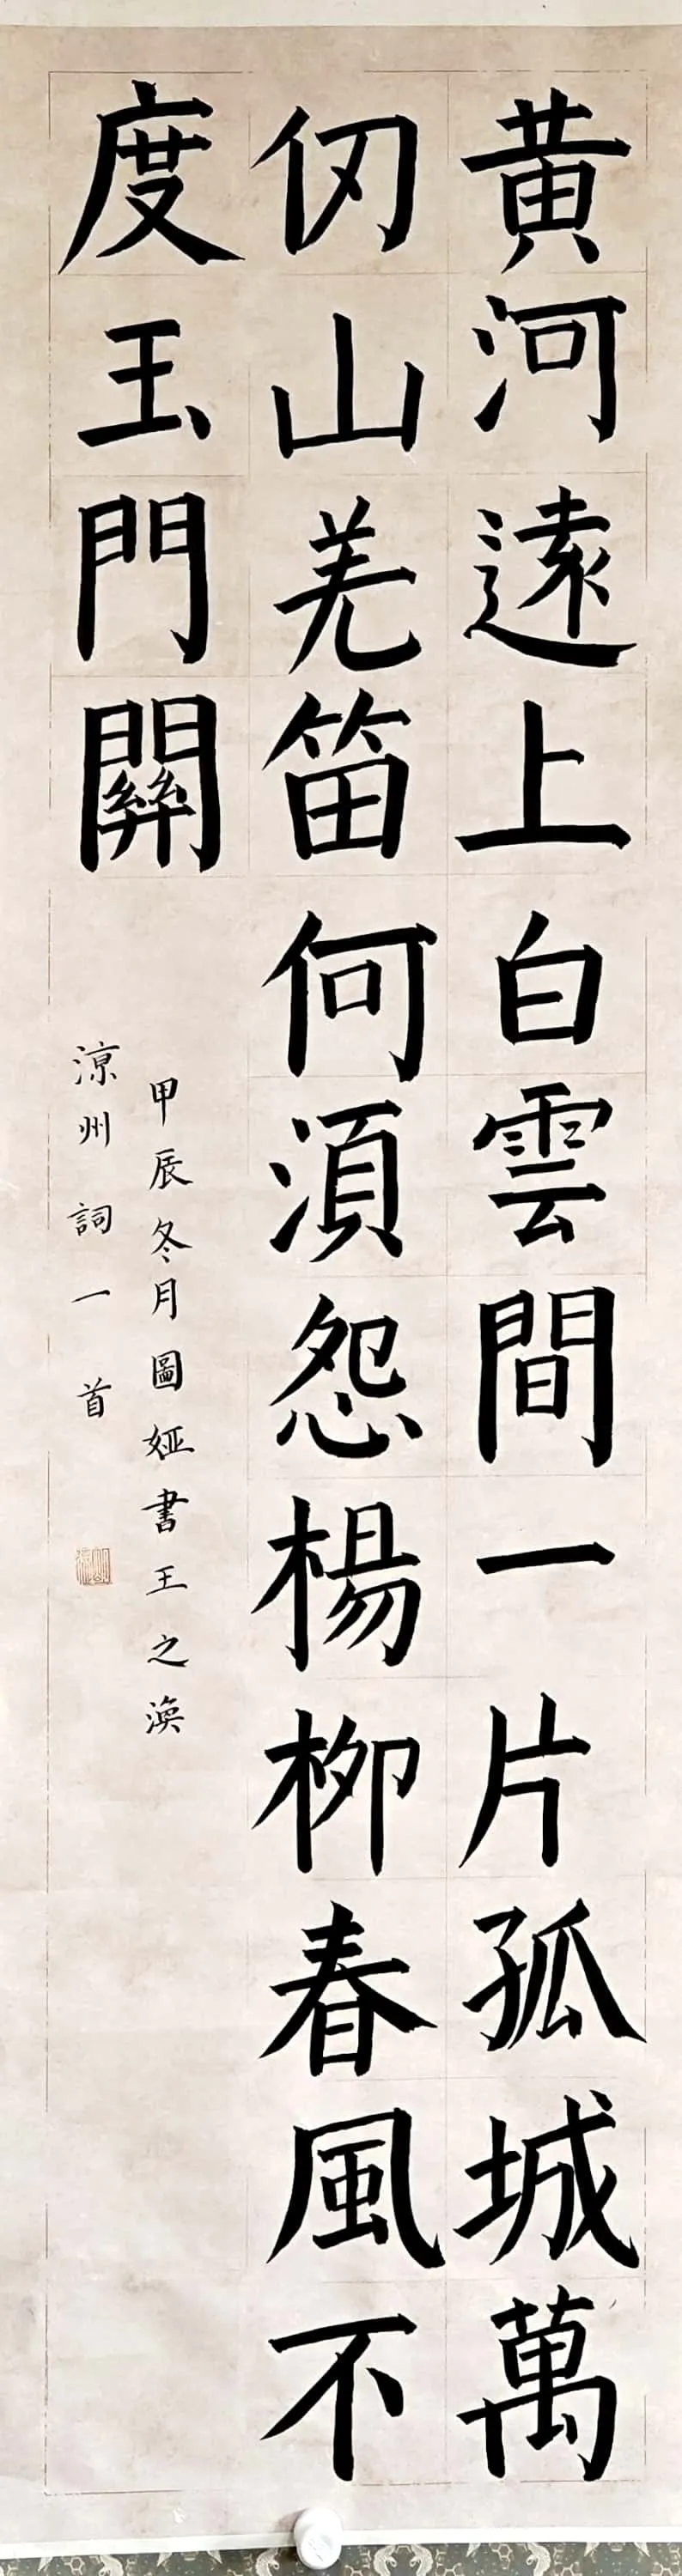 黄河遠上白雲間一片孤城萬
仞山羌笛何湏怨楊柳春風不
度玉門關
甲辰冬月圖婭書王之渙
涼州詞一首